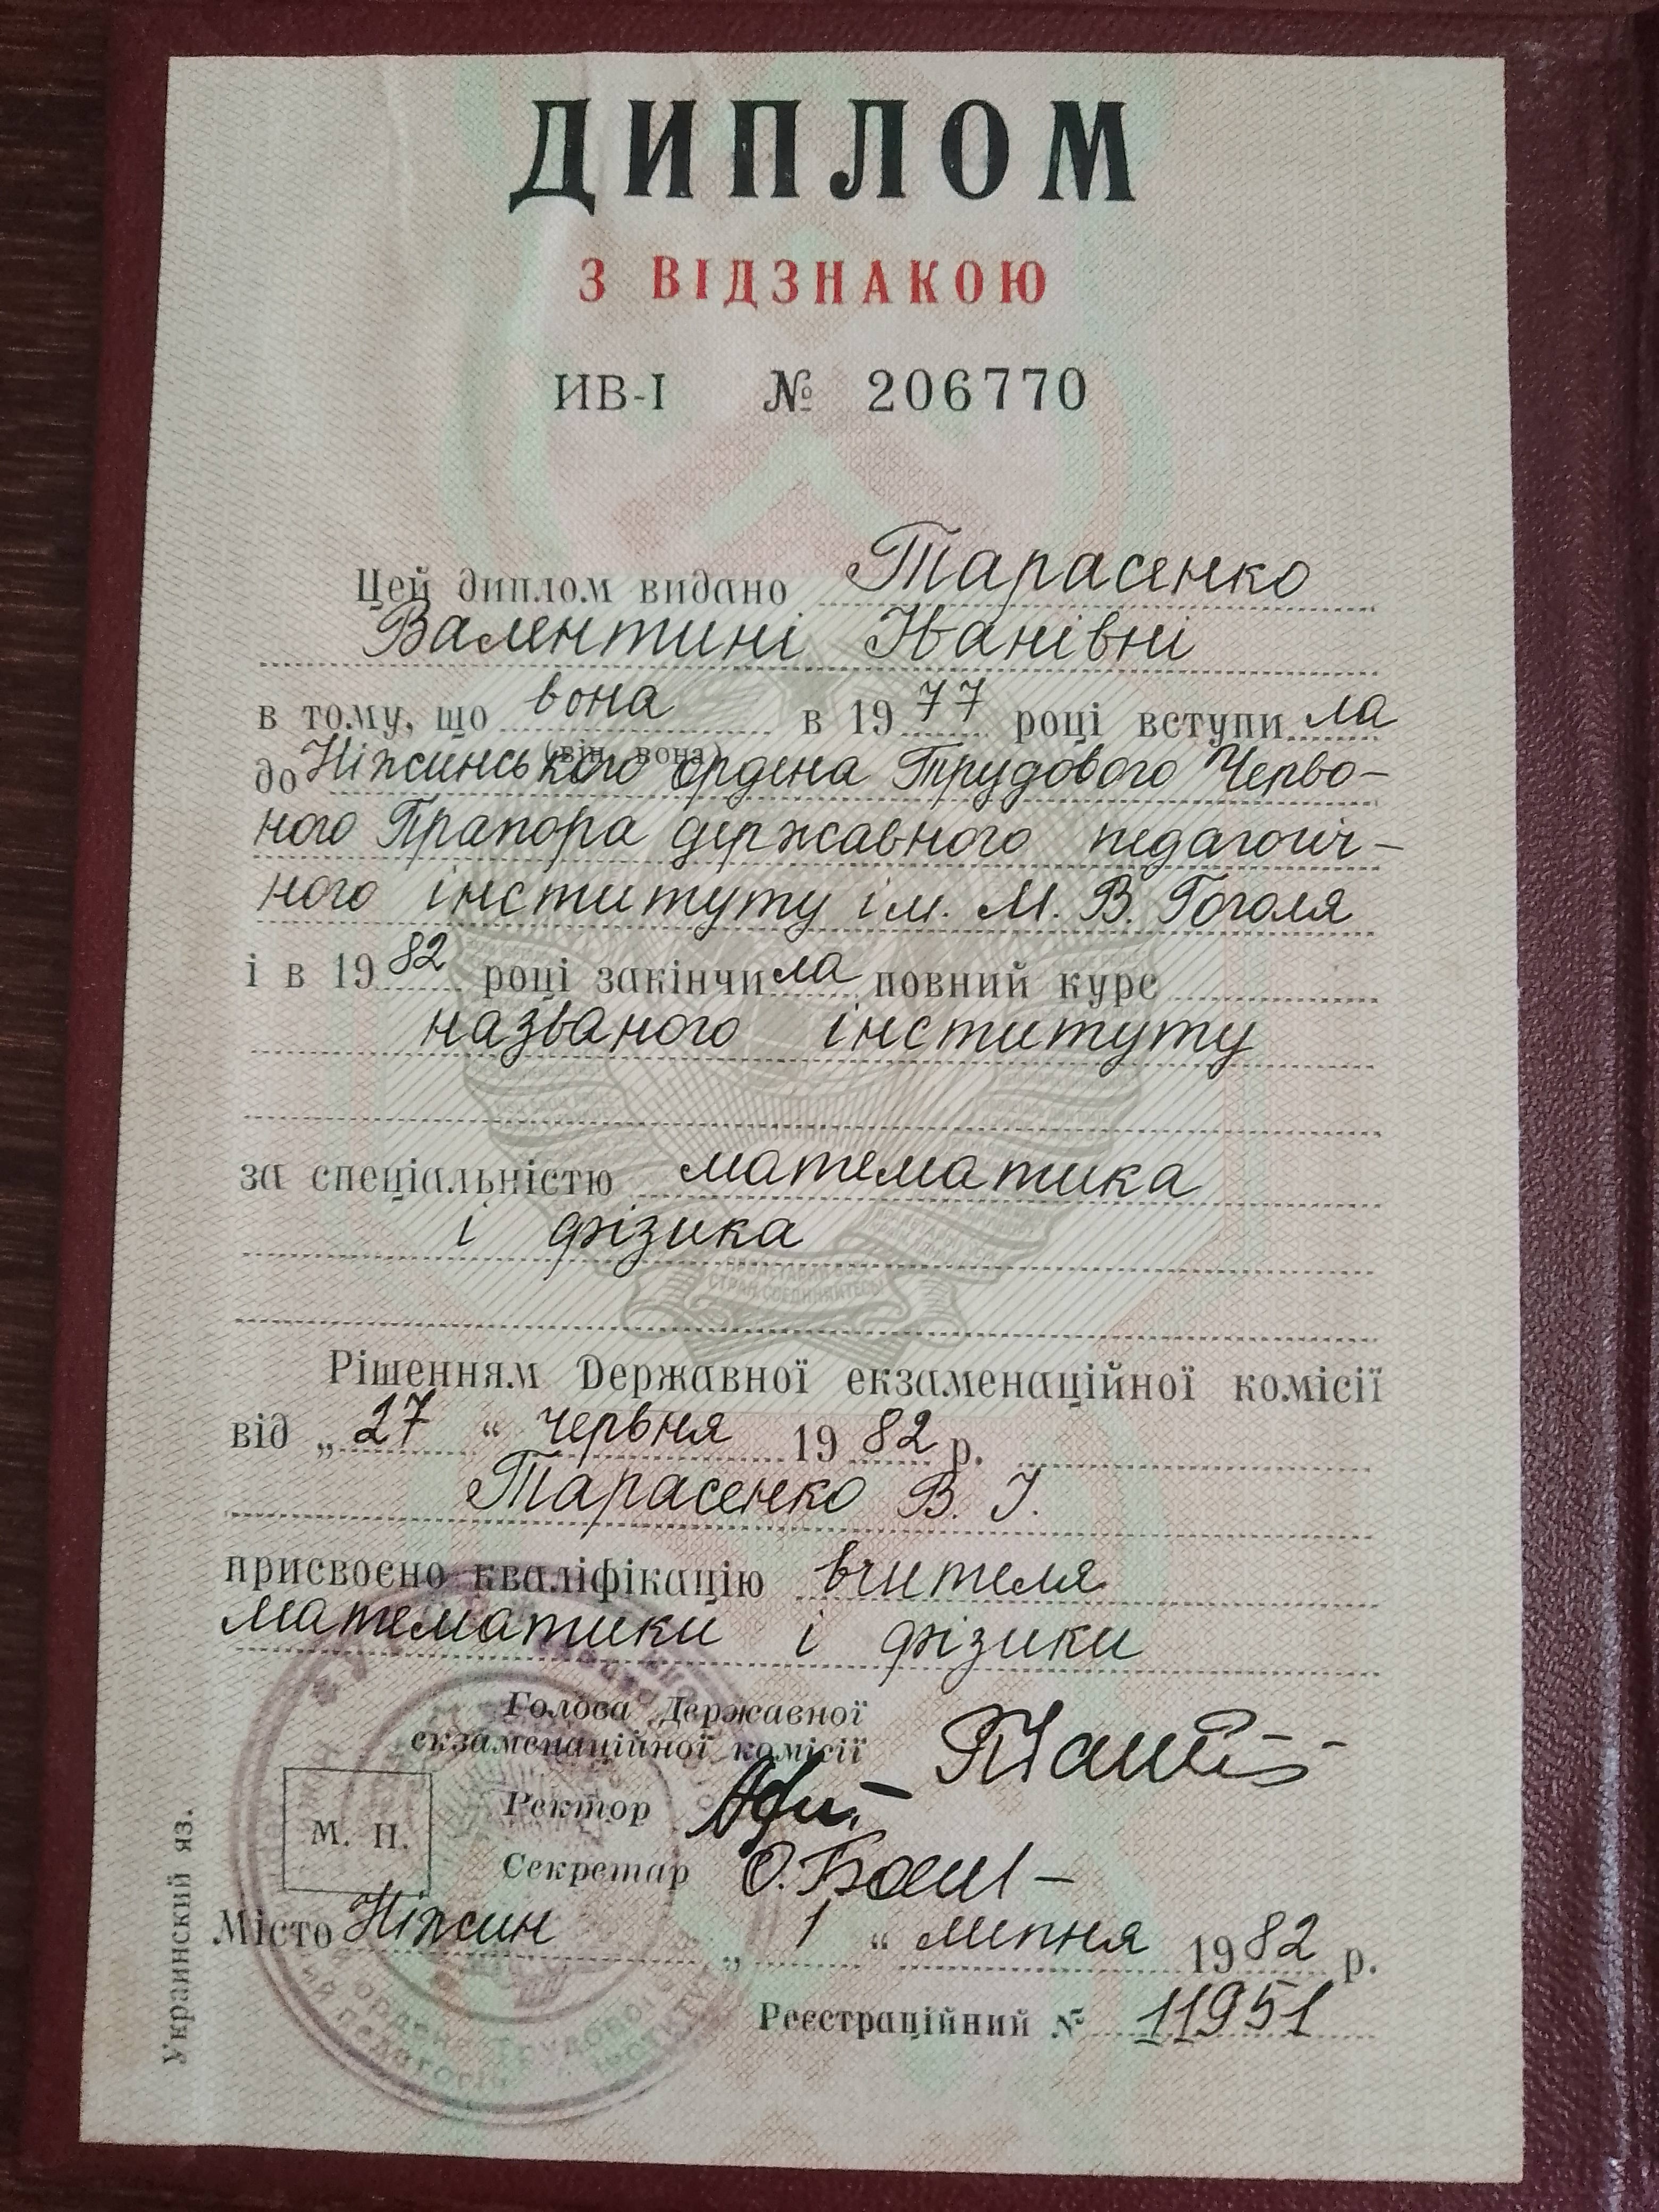 ДИПЛОМ
З ВІДЗНАКОЮ
ИВ-І № 206770
Цей диплом видано Тарасенко
Валентині Іванівні
в тому, що вона в 1977 році вступила
(він, вона)
до Ніжинського ордена Трудового Черво-
ного Прапора державного педагогіч-
ного інституту ім. М. В. Гоголя
і в 1982 році закінчила повний курс
названого інституту
за спеціальністю математика
і фізика
Рішенням Державної екзаменаційної комісії
від „27“ червня 1982 р.
Тарасенко В. І.
присвоєно кваліфікацію вчителя
математики і фізики
Голова Державної
екзаменаційної комісії
Ректор
Секретар
М. П.
Місто Ніжин „1“ липня 1982 р.
Реєстраційний № 11951
Украинский яз.